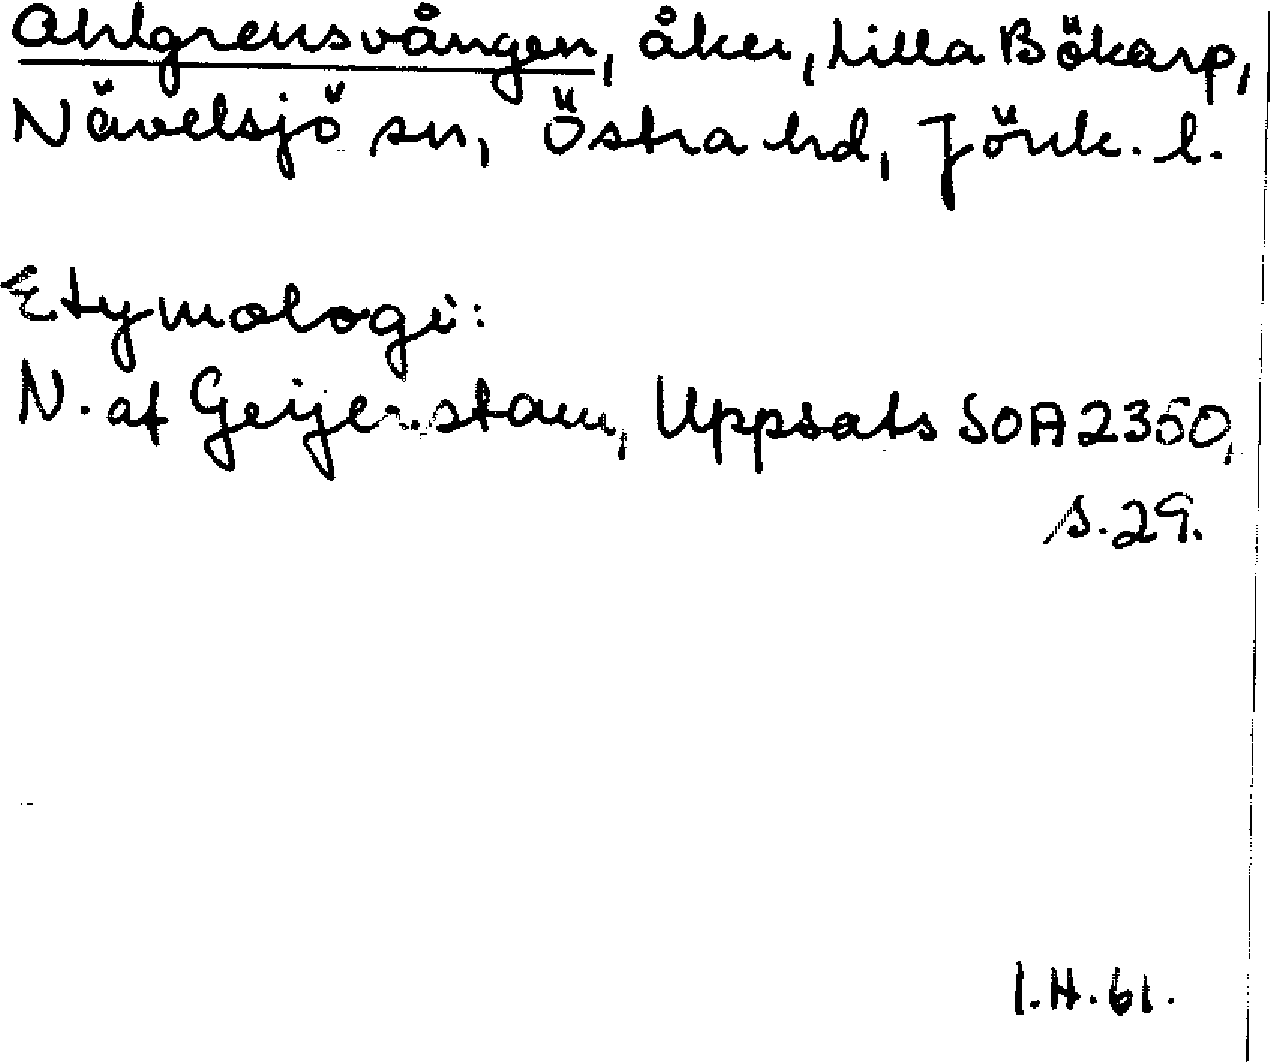 Ahlgrensvången, åker, Lilla Bökarp,
Nävelsjö sn, Östra hd, Jönk. l.
Etymologi:
N. af Geijerstam, Uppsats SOA 2350,
s. 29.
I.H. 61.